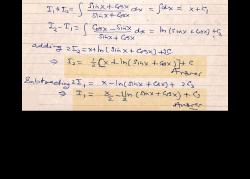 I₁+I₂ = ∫ (Sinx + Cosx)/(Sinx + Cosx) dx = ∫dx = x + C₁
I₂ - I₁ = ∫ (Cosx - Sinx)/(Sinx + Cosx) dx = ln(Sinx + Cosx) + C₂
adding 2I₂ = x + ln(Sinx + Cosx) + 2C
⇒ I₂ = ½[x + ln(Sinx + Cosx)] + C
Answer
Subtracting 2I₁ = x - ln(Sinx + Cosx) + 2C₃
⇒ I₁ = x/2 - ½ln(Sinx + Cosx) + C₃
Answer